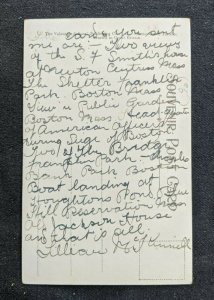 cards you sent
me are :— Two views
of the S. F. Smith's house
of Newton Centre Mass
The Shelter Franklin
Park Boston Mass
View Public Garden
Boston Mass
of American officers
during Siege of Boston
Two of The Bridge
Franklin Park
Bank Park Boston
Boat landing at
Houghtons Pond Blue
Hill Reservation Mass
Jackson House
and that is all.
Lillian M.
SOUVENIR POST CARD